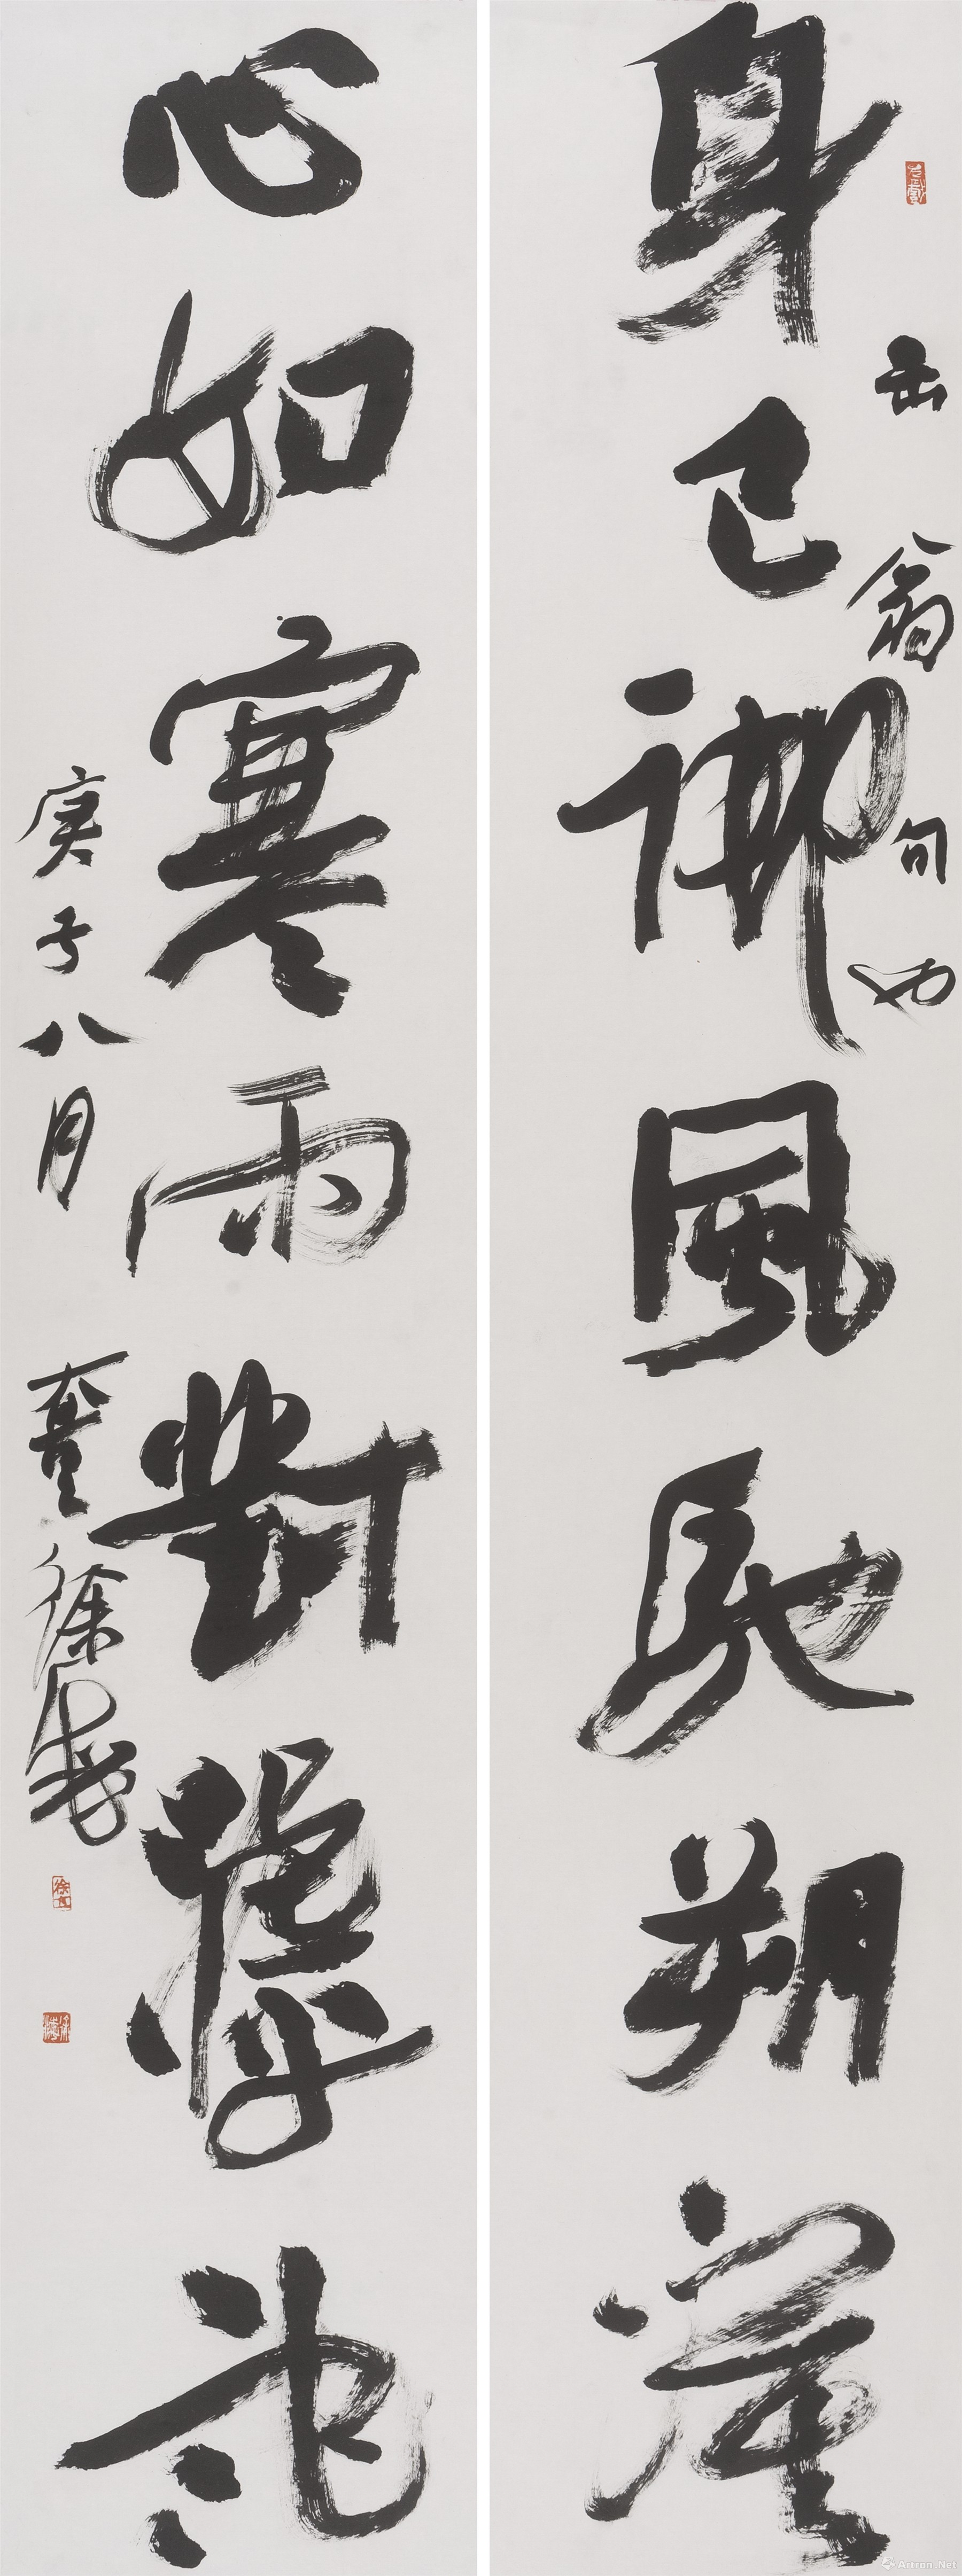 身已御風馳朔漠
缶翁句也
心如寒雨對
庚子八月 徐
Artron.Net